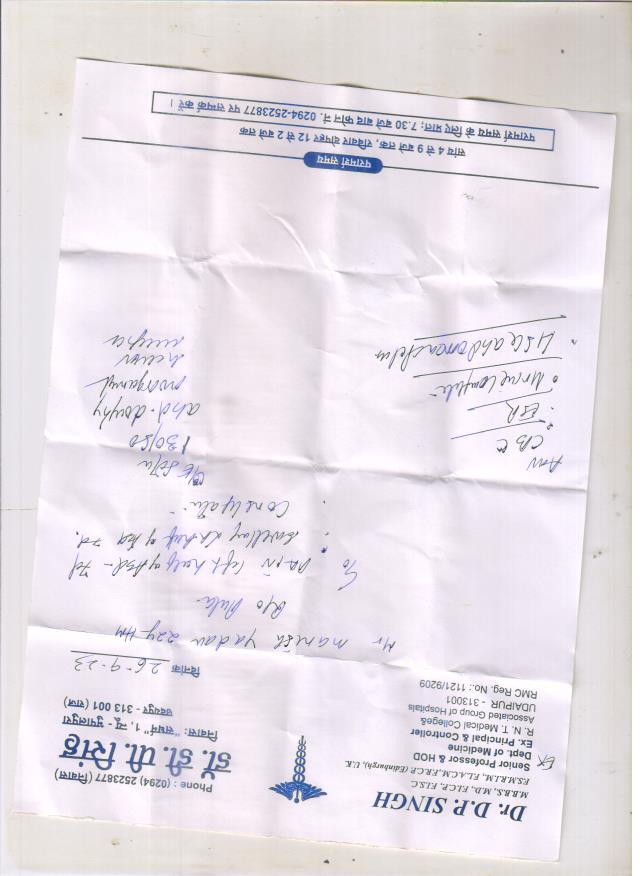 Dr. D.P. SINGH
M.B.B.S., M.D., F.I.C.P., F.I.S.C.
F.S.M.R.I.M., F.L.A.C.A., F.R.C.P. (Edinburgh), U.K.
Ex
Senior Professor & HOD
Dept. of Medicine
Ex. Principal & Controller
R. N. T. Medical College&
Associated Group of Hospitals
UDAIPUR - 313001
RMC Reg. No.: 1121/9209
Phone : (0294) 2523877 (निवास)
डॉ. डी. पी. सिंह
निवास: "संघर्ष" 1, न्यू
उदयपुर - 313 001 (राज)
दिनांक 26-9-23
Mr Manish Yadav 22y HM
R/o
C/o Pain left half of Abd - 7d
Swelling left half of 7d.
Constipati
O/E
130/80
abd-doughy
no organs
Adv
CBC
ESR
Urine Complete
USG abdomen
परामर्श समय
सांय 4 से 9 बजे तक, रविवार दोपहर 12 से 2 बजे तक
परामर्श समय के लिए प्रात: 7.30 बजे बाद फोन नं. 0294-2523877 पर सम्पर्क करें ।